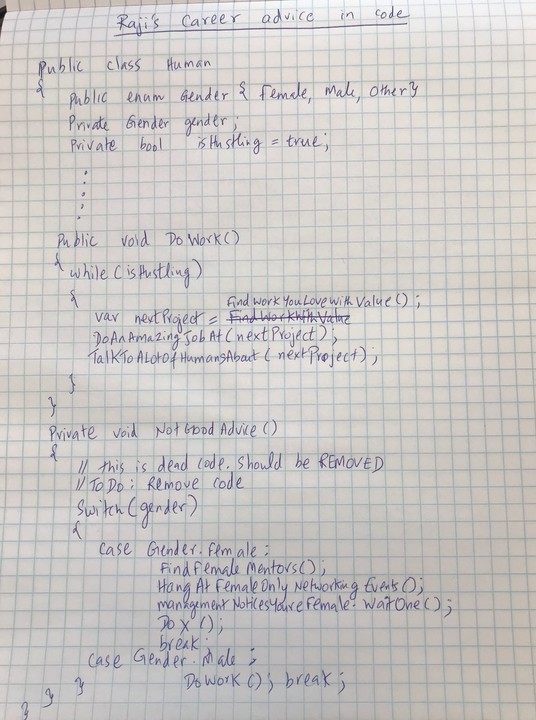 Raji's Career advice in code
Public class Human
{
Public enum Gender { Female, Male, Other }
Private Gender gender;
Private bool isHustling = true;
Public void DoWork()
{ while (isHustling)
{
FindWorkYouLoveWithValue();
var nextProject = FindWorkWithValue
DoAnAmazingJobAt(nextProject);
TalkToALotOfHumansAbout(nextProject);
}
}
Private void NotGoodAdvice()
{
// this is dead code. Should be REMOVED
// ToDo: Remove code
Switch(gender)
{
case Gender.Female:
FindFemaleMentors();
HangAtFemaleOnlyNetworkingEvents();
managementNoticesYoureFemale.WaitOne();
DoX();
break;
case Gender.Male:
} } } DoWork(); break;